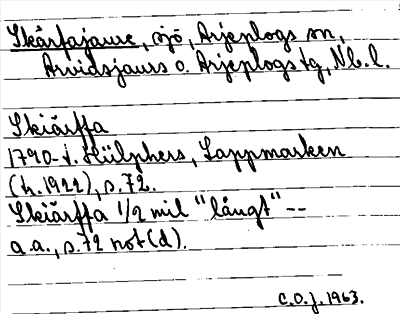 Skärfajaure, sjö, Arjeplogs sn,
Arvidsjaurs o. Arjeplogs tg, Nb.l.
Skiärffa
1790-t. Hülphers, Lappmarken
(h.1922), s.72.
Skiärffa 1/2 mil "långt" --
a.a., s.72 not(d).
C.O.J. 1963.